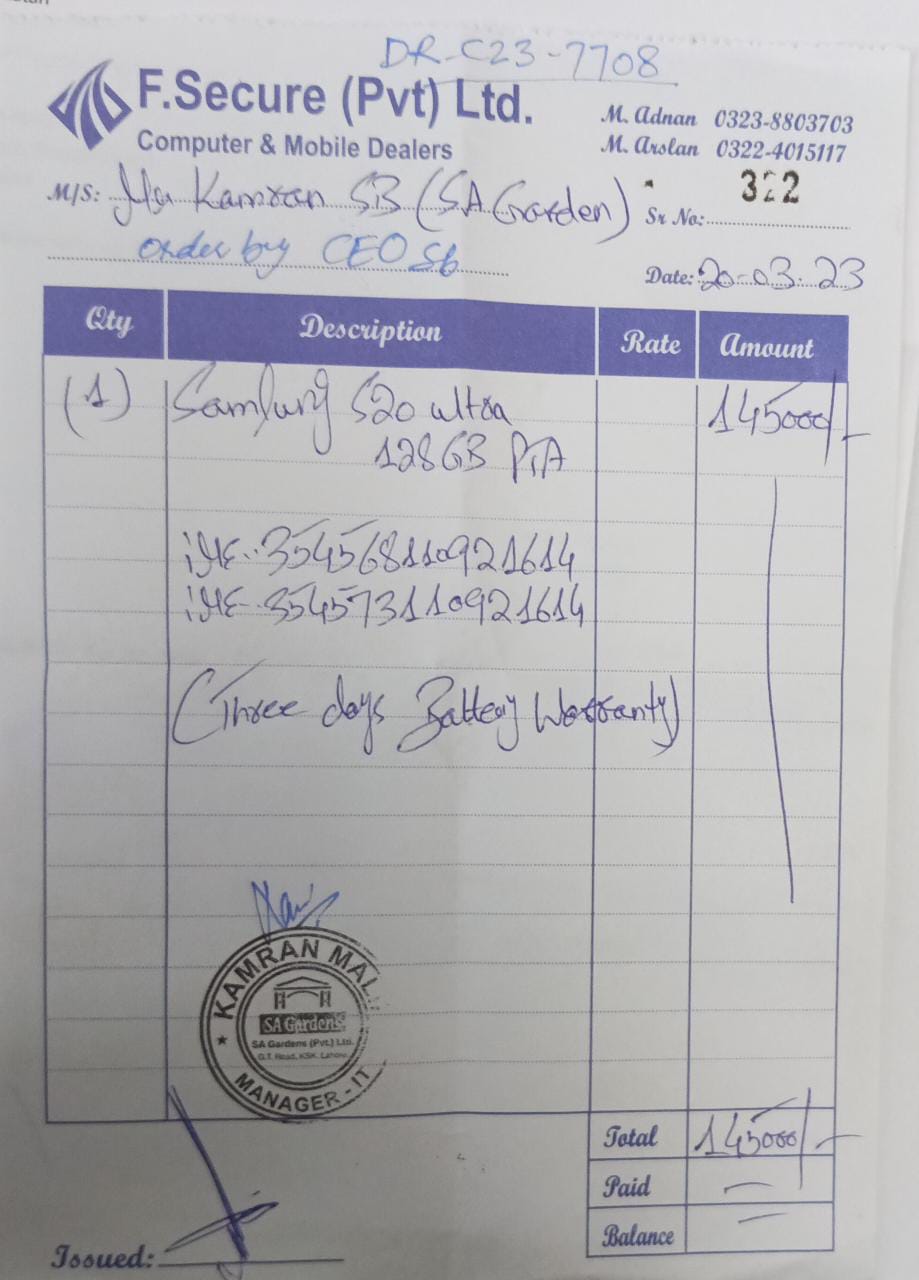 DR-C23-7708
F.Secure (Pvt) Ltd.
Computer & Mobile Dealers
M. Adnan 0323-8803703
M. Arslan 0322-4015117
M/S: Mr Kamran SB (SA Garden)
Sr No: 322
order by CEO Sb
Date: 20-03-23
Qty Description Rate Amount
(1) Samsung S20 ultra 145000/-
128GB PTA
iME..354568110921614
iME-354573110921614
(Three days Battery Warranty)
KAMRAN
SA Gardens
SA Gardens (Pvt.) Ltd.
G.T. Road, KSK, Lahore.
MANAGER - IT
Total 145000/-
Paid —
Balance —
Issued: